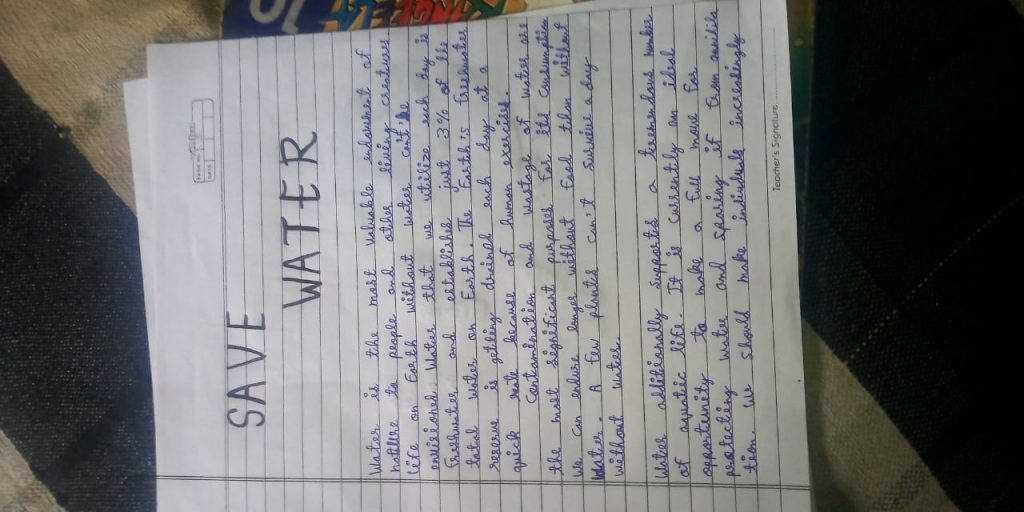 SAVE
WATER
Water is the most valuable endowment of
nature to people and other living creatures.
life on Earth without water can't be
envisioned. Water that we utilize each day is
Freshwater and establishes just 3% of the
total water on Earth. The Earth's Freshwater
reserve is getting drained each day at a
quick rate because of human exercise.
Contamination and wastage of water are
the most significant purposes for its Consumption
We Can endure longer without Food than without
Water. A Few plants can't Survive a day
without water.
Water additionally Supports a tremendous number
of aquatic life. It is currently an ideal
opportunity to make a full move for
protecting water and Sparing it From
tion. We Should make individuals increasingly
Teacher's Signature